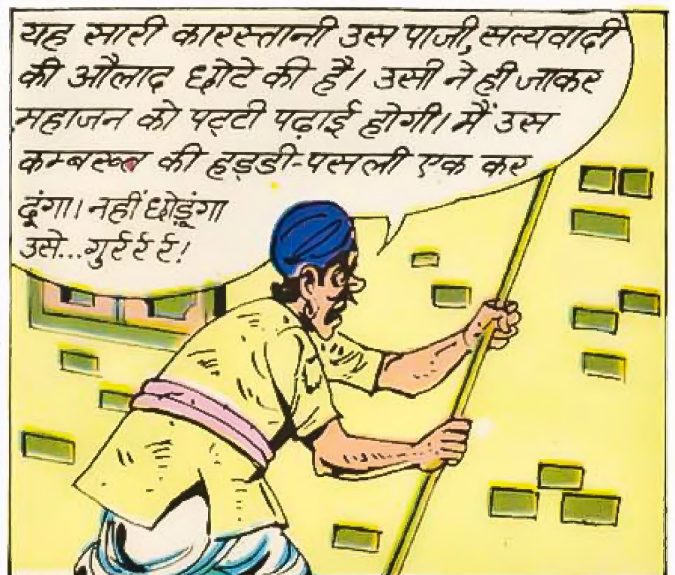 यह सारी कारस्तानी उस पाजी, सत्यवादी
की औलाद छोटे की है। उसी ने ही जाकर
महाजन को पट्टी पढ़ाई होगी। मैं उस
कम्बख्त की हड्डी-पसली एक कर
दूंगा। नहीं छोडूंगा
उसे...गुर्र र्र र्र!